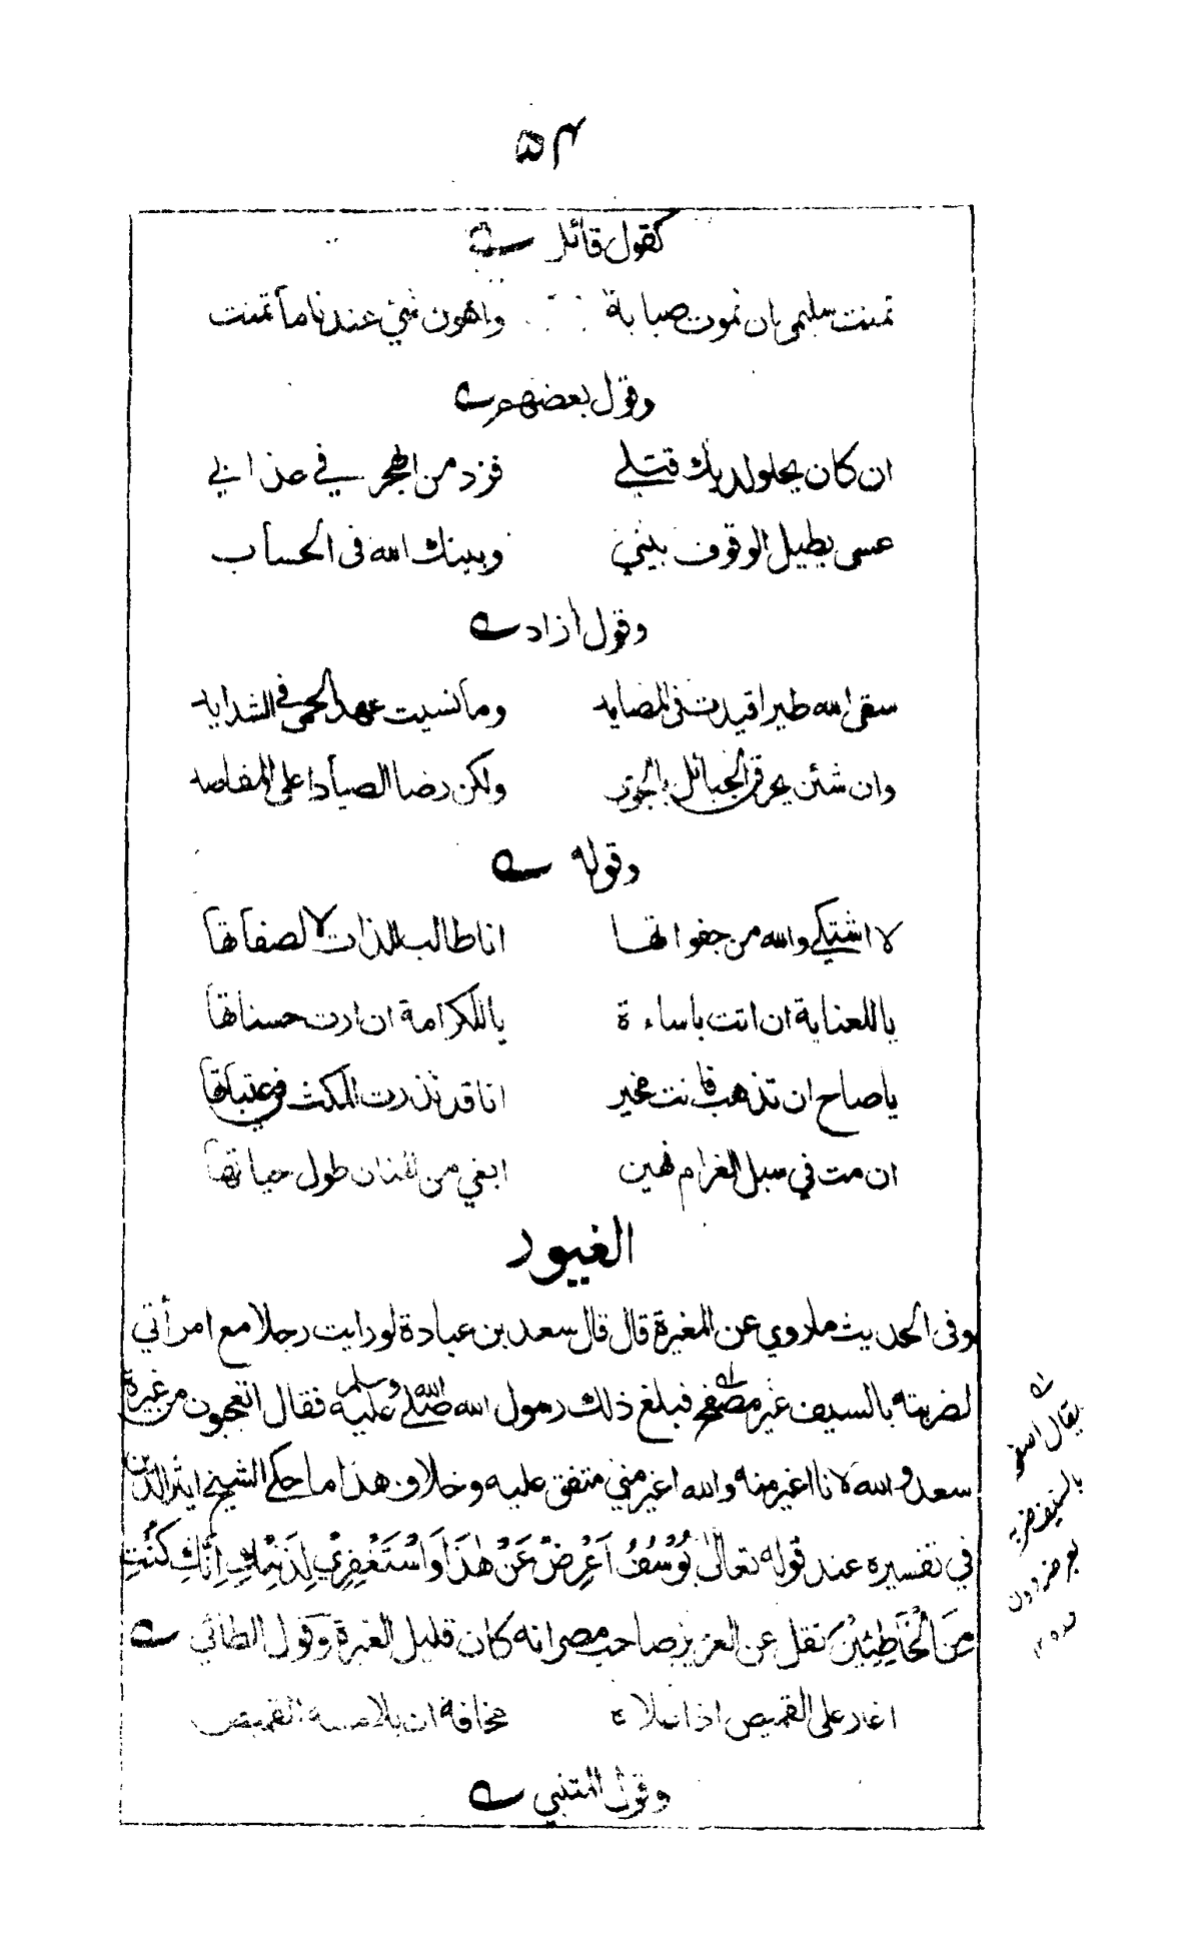 ۵۴
كقول قائل
تمنت سليمى بان نموت صبابة واهون شئ عندنا ما تمنت
وقول بعضهم
ان كان يحلو لديك قتلي فزد من الهجر في عذابي
عسى يطيل الوقوف بيني وبينك الله فى الحساب
وقول ازاد
سقى الله طيرا قيدت فى المصايد وما نسيت عهد الحمى في الشدايد
وان شئن يحرقن الحبائل بالجوى ولكن رضا الصياد اعلى المقاصد
وقوله
لا اشتكي والله من جفواتها انا طالب للذات لا لصفاتها
يا للعناية ان اتت باساءة يا للكرامة ان ارت حسناتها
يا صاح ان تذهب فانت مخير انا قد نذرت المكث في عتباتها
ان مت في سبل الغرام فهين ابغي من المنان طول حياتها
الغيور
وفى الحديث ما روي عن المغيرة قال قال سعد بن عبادة لو رايت رجلا مع امرأتي
لضربته بالسيف غير مصفح فبلغ ذلك رسول الله صلى الله عليه وسلم فقال اتعجبون من غيرة
سعد والله لانا اغير منه والله اغير مني متفق عليه وخلاف هذا ما حكى الشيخ اثير الدين
في تفسيره عند قوله تعالى يُوسُفُ اَعْرِضْ عَنْ هٰذَا وَاسْتَغْفِرِيْ لِذَنْبِكِ اِنَّكِ كُنْتِ
مِنَ الْخَاطِئِيْنَ نقل عن العزيز صاحب مصر انه كان قليل الغيرة وقول الطائي
اغار على القميص اذا علاه مخافة ان يلامسه القميص
وقول المتنبي
يقال اصفح
بالسيف ضربه
بعرضه دون
حده ۱۲